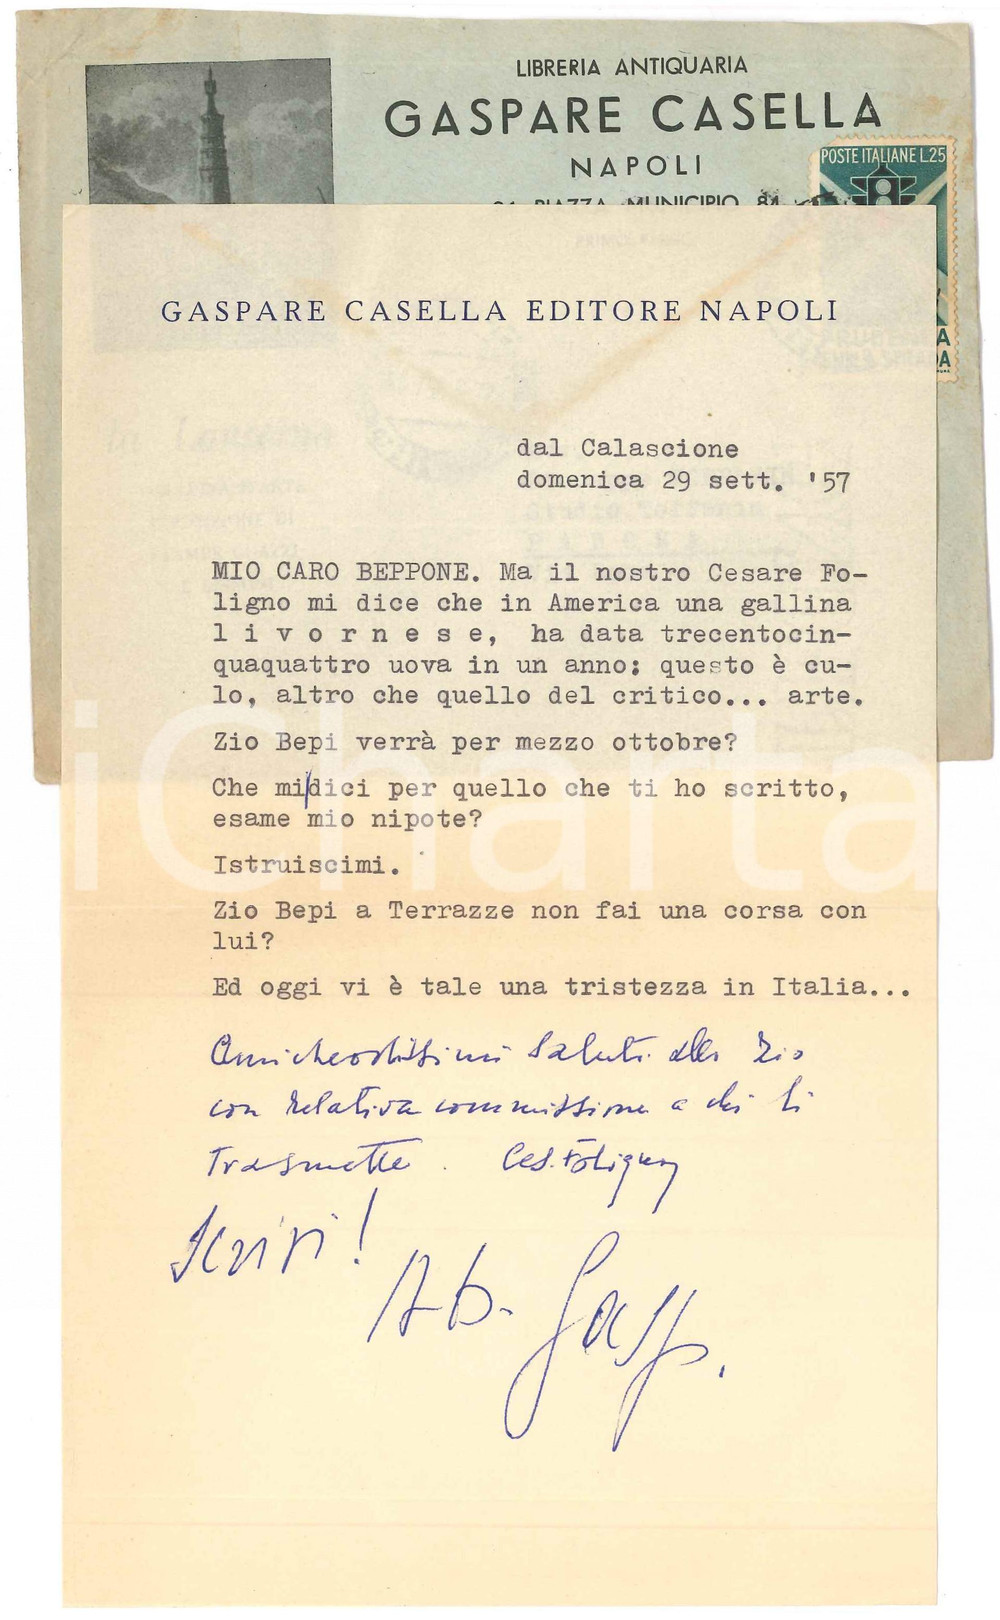 LIBRERIA ANTIQUARIA
GASPARE CASELLA
NAPOLI
PIAZZA MUNICIPIO 84
POSTE ITALIANE L.25
GASPARE CASELLA EDITORE NAPOLI
dal Calascione
domenica 29 sett. '57
MIO CARO BEPPONE. Ma il nostro Cesare Fo-
ligno mi dice che in America una gallina
l i v o r n e s e, ha data trecentocin-
quaquattro uova in un anno: questo è cu-
lo, altro che quello del critico... arte.
Zio Bepi verrà per mezzo ottobre?
Che mi/dici per quello che ti ho scritto,
esame mio nipote?
Istruiscimi.
Zio Bepi a Terrazze non fai una corsa con
lui?
Ed oggi vi è tale una tristezza in Italia...
saluti allo Zio
con relativa commissione a chi li
trasmette. Ces. Foligno
Scrivi!
Gasp.
iCharta